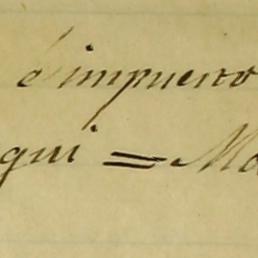 é impuesto
qui = Ma